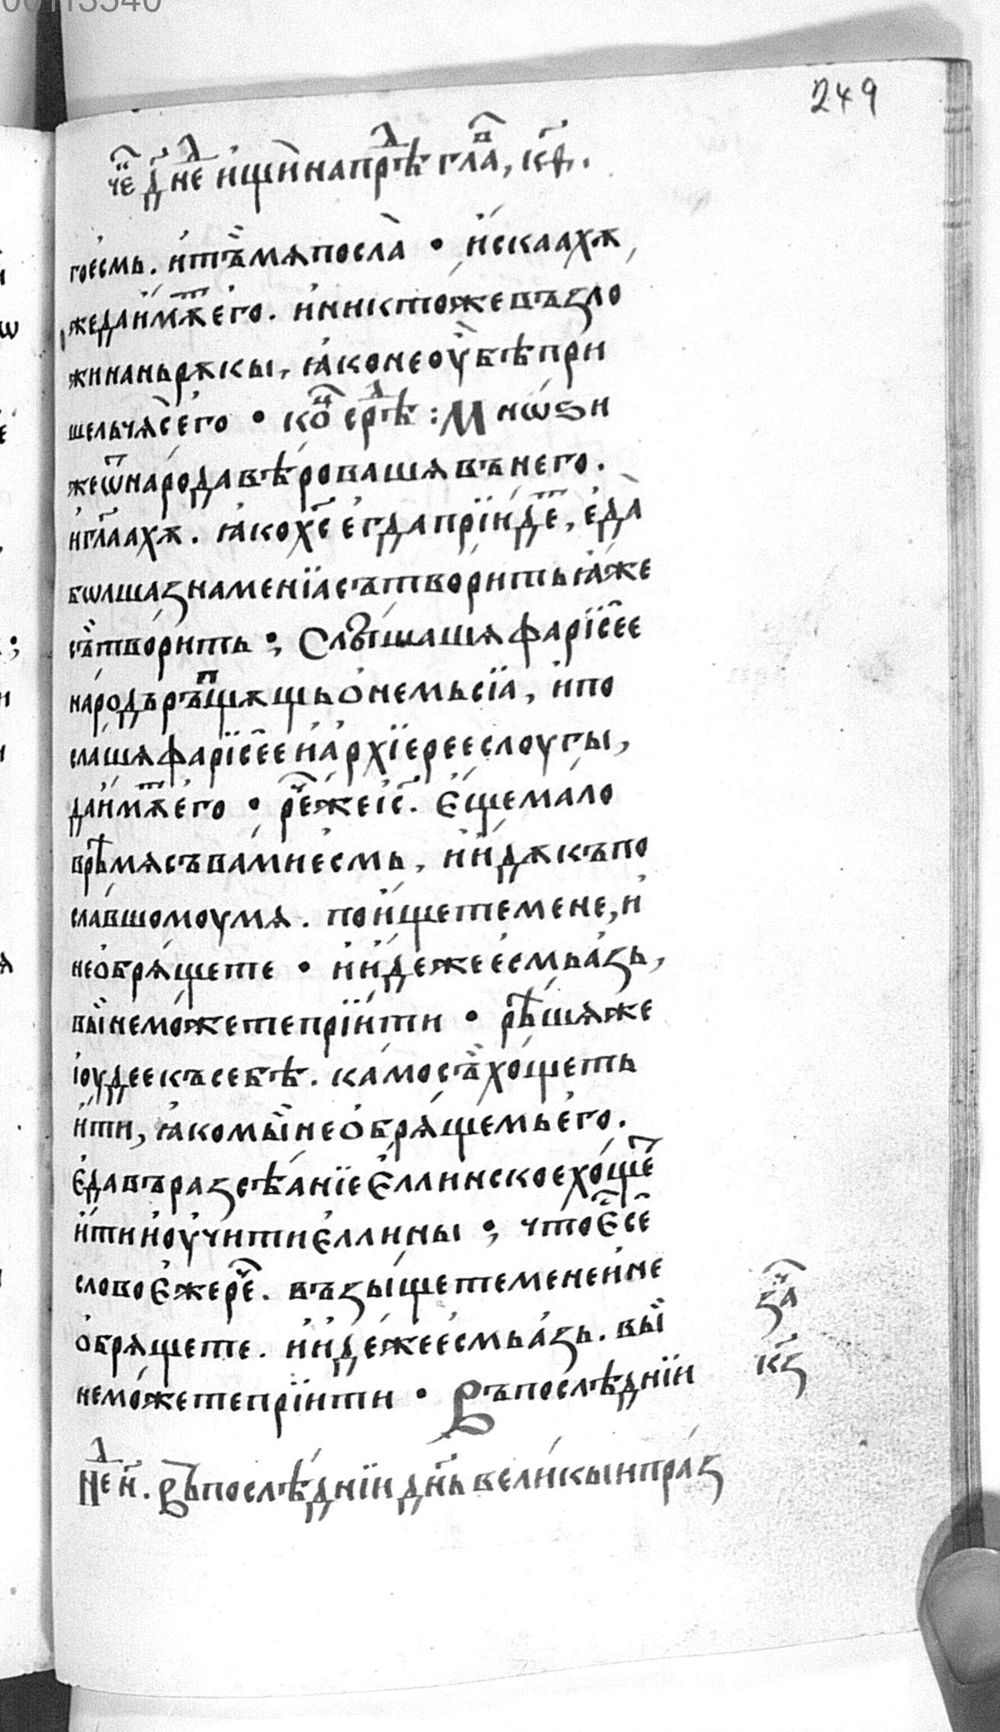 00113540
249
че҃ д҃ не҃ и҆щи̏ напрѣⷣ гла҃ⷡ, к҃д.
го е҆смь. и҆ тъ̏ мѧ посла̀ • и҆скаахѫ
же да и҆мѫⷮ е҆го. и҆ никтоже възло
жи на нь рѫкы, ꙗ҆ко не ᲂу҆̀ бѣ при
шелъ чѧⷭ҇ е҆го • коⷰ҇ срⷣѣ : Мнѡѕи
же ѿ народа вѣровашѧ въ него.
и҆ гл҃аахѫ. ꙗ҆ко х҃с е҆гда прїидеⷮ, е҆да̀
бѡлша знаменїа сътворить ꙗ҆же
съ̏творить ; Слышашѧ фарїсе҆е
народъ ръпщѫщь ѻ҆ немь сїа, и҆ по
слашѧ фарїсе҆е и҆ а҆рхїерее слоугы,
да и҆мѫⷮ е҆го • реⷱ҇ же і҆с҃. Є҆ще мало
врѣмѧ съ вами е҆смь, и҆ и҆дѫ къ по
славшомоу мѧ. пои҆щете мене, и҆
не ѻ҆брѧщете • и҆ и҆деже е҆смь а҆зь,
вы̏ не можете прїити • рѣшѧ же
і҆оудее къ себѣ. камо съ̏ хощеть
и҆ти, ꙗ҆ко мы̏ не ѻ҆брѧщемь е҆го.
є҆да въ разсѣанїе є҆ллинское хощеⷮ
и҆ти и҆ ᲂу҆чити є҆ллины ; что є҆ⷭ҇ се
слово є҆же реⷱ҇. възыщете мене и҆ не
ѻ҆брѧщете. и҆ и҆деже е҆смь а҆зь. вы̏
не можете прїити • Въ послѣднїи
за҃ⷱ
к҃з
Неⷣ н҃. Въ послѣднїи дн҃ь великыи праз